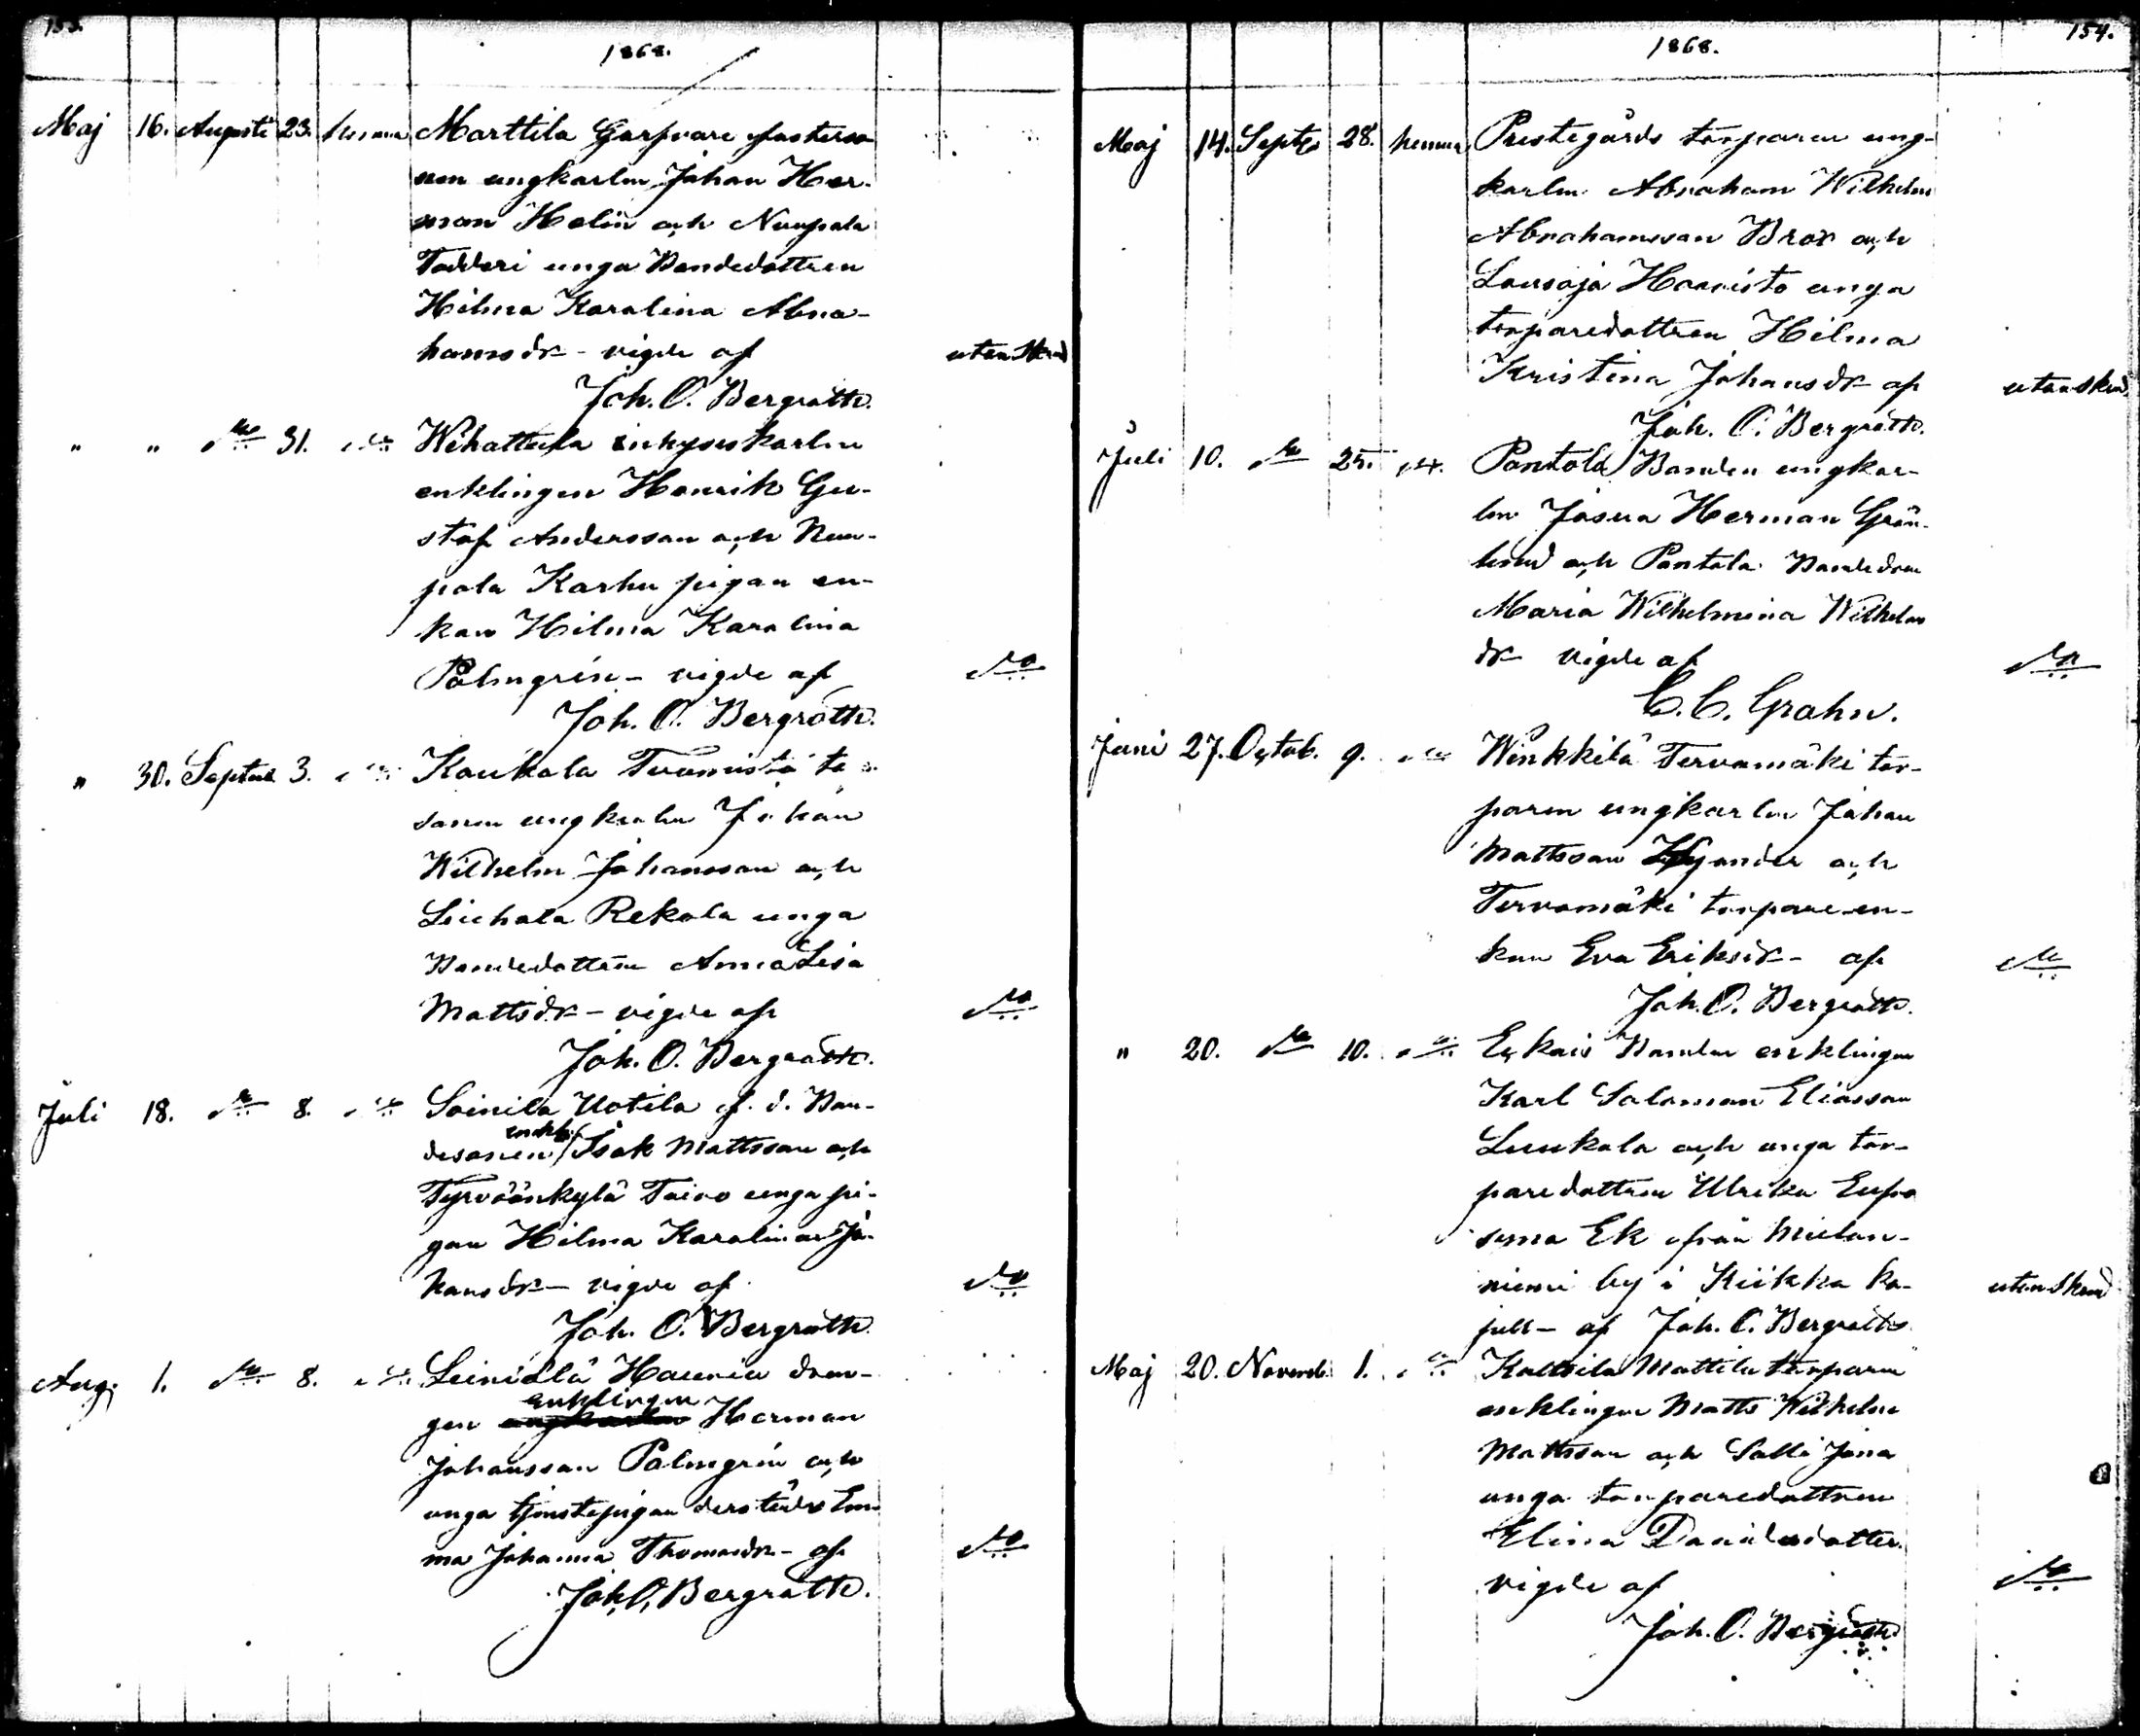 153.
1868.
Maj 16. Augusti 23. hemma Marttila Garfvare foster so
nen ungkarlen Johan Her-
man Helin och Nuupala
Tadderi unga Bondedottren
Hilma Karolina Abra-
hamsdr - vigde af utan Skud
Joh. O. Bergroth.
" " do 31. do Wihattula inhyseskarlen
enklingen Henrik Gu-
staf Andersson och Nuu-
pala Karhu pigan en-
kan Hilma Karolina
Palmgrén - vigde af do
Joh. O. Bergroth.
" 30. Septem 3. do Kaukola Tuomisto
sonen ungkarlen Johan
Wilhelm Johansson och
Liuhala Rekola unga
Bondedottren Anna Lisa
Mattsdr - vigde af do
Joh. O. Bergroth.
Juli 18. do 8. do Soinila Uotila f. d. Bon-
enkl.
desonen Isak Mattsson och
Tyrväänkylä Toivo unga pi-
gan Hilma Karolina Jo-
hansdr - vigde af do
Joh. O. Bergroth
Aug. 1. do 8. do Leinilä Haunia dren-
enklingen
gen ungkarlen Herman
Johansson Palmgrén och
unga tjenstepigan derstädes Em-
ma Johanna Thomasdr - af do
Joh. O. Bergroth.
154.
1868.
Maj 14. Septbr 28. hemma Prestegårds torparen ung-
karlen Abraham Wilhelm
Abrahamsson Brox och
Lousaja Haavisto unga
torparedottren Hilma
Kristina Johansdr af utan skud
Joh. O. Bergroth.
Juli 10. do 25. do Pontola Bonden ungkar-
len Josua Herman Grön-
lund och Pontola Bondedrn
Maria Wilhelmina Wilhelms
dr vigde af do
C. C. Grahn.
Juni 27. Octob. 9. do Winkkilä Tervamäki tor-
paren ungkarlen Johan
Mattsson Nyander och
Tervamäki torpare-en-
kan Eva Eriksdr - af do
Joh. O. Bergroth.
" 20. do 10. do Ekais Bonden enklingen
Karl Salomon Eliasson
Luukala och unga tor-
paredottren Ulrika Eufro
sina Ek ifrån Mielan-
niemi by i Kiikka ka-
pell - af Joh. O. Bergroth utan Skud
Maj 20. Novemb. 1. do Kaltsila Mattila torparen
enklingen Matts Wilhelm
Mattsson och Salli Jona
unga torparedottren
Elina Davidsdotter.
vigde af do
Joh. O. Bergroth